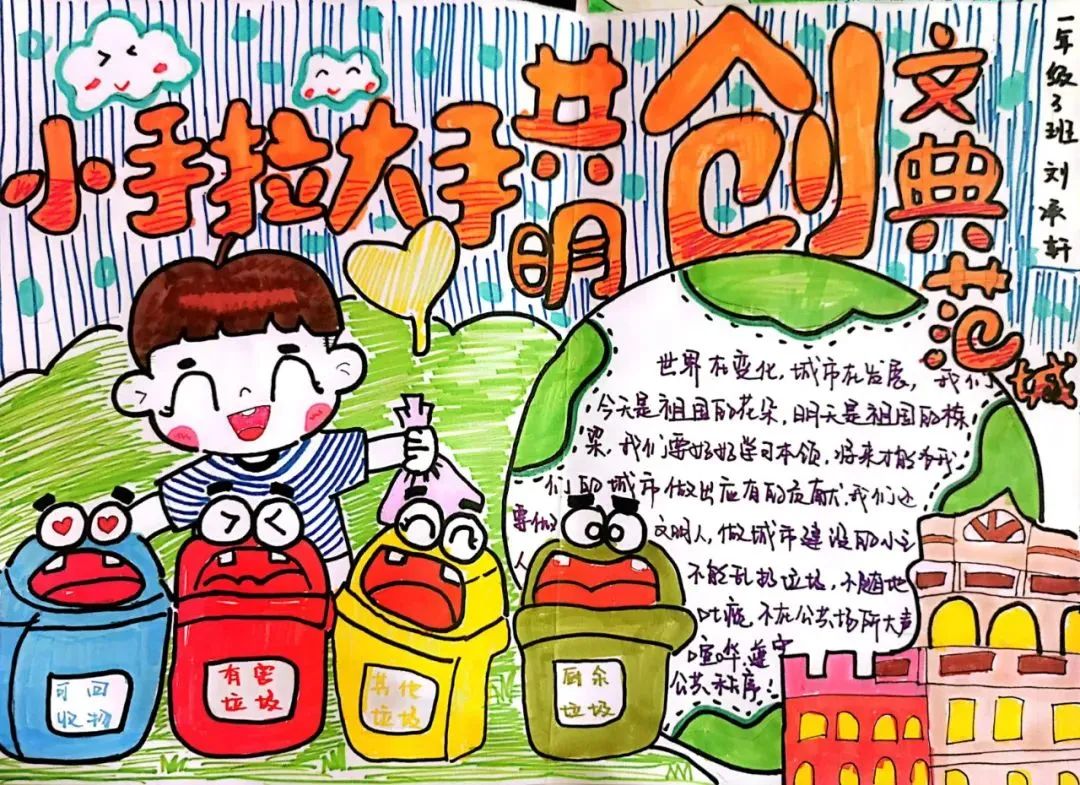 小手拉大手
共创文
明典范城
一年级3班 刘承轩
世界在变化,城市在发展,我们
今天是祖国的花朵,明天是祖国的栋
梁,我们要好好学习本领,将来才能为我
们的城市做出应有的贡献.我们还
要做文明人,做城市建设的小主
人 不能乱扔垃圾,不随地
吐痰,不在公共场所大声
喧哗,遵守
公共秩序!
可回
收物
有害
垃圾
其他
垃圾
厨余
垃圾